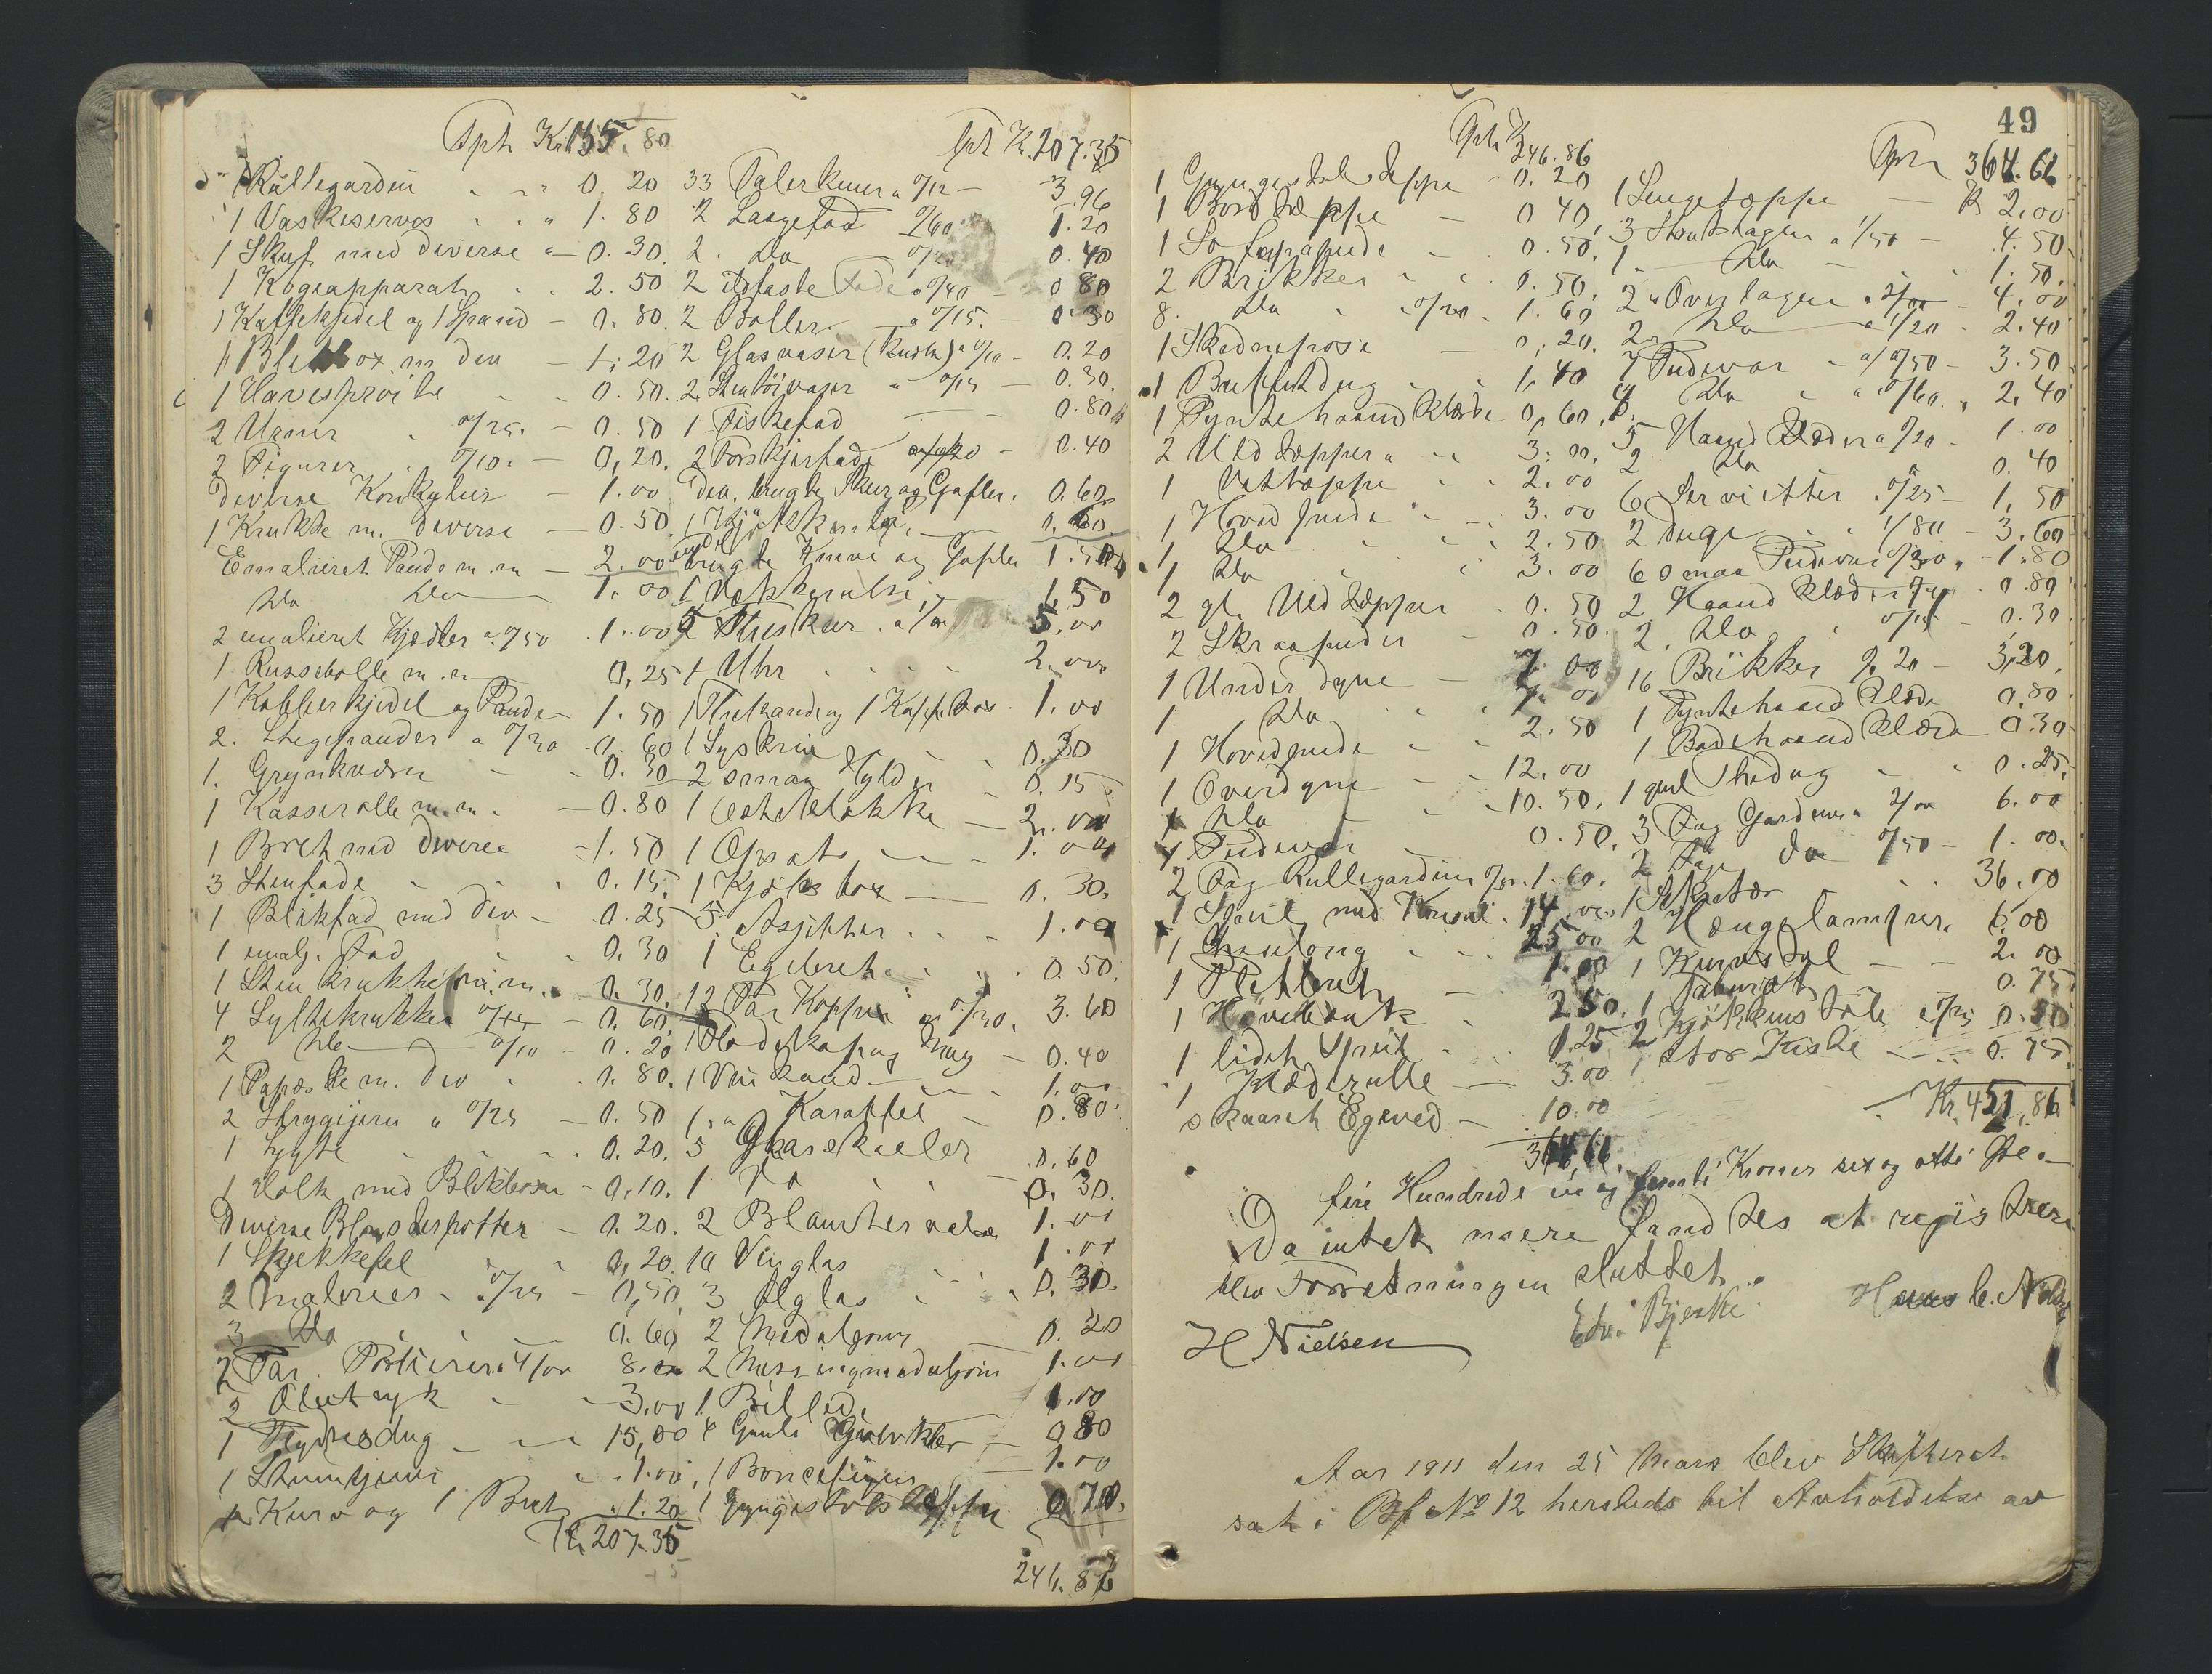 Tpt Kr 155.80
1 Rullegardin 0.20
1 Vaskeservos 1.80
1 Skuf med diverse 0.30
1 Kogeapparat 2.50
1 Kaffekjedel og 1 Spand 0.80
1 m div 1.20
1 Havesproite 0.50
2 Urner 0/25 0.50
2 Figurer 0/10 0.20
Diverse Konkylier 1.00
1 Krukke m. diverse 0.50
Emalieret Pande m.m 2.00
Do Do 1.00
2 emalieret Kjedler a 0/50 1.00
1 Russebolle m.m 0.25
1 Kobberkjedel og Pande 1.50
2 Stegepander a 0/30 0.60
1 Grynkværn 0.30
1 Kasserolle m.m. 0.80
1 Bret med Diverse 1.50
3 Stenfade 0.15
1 Blikfad med div 0.25
1 emalj. Fad 0.30
1 Sten Krukke m.m. 0.30
4 Syltekrukker 0/15 0.60
2 Do 0/10 0.20
1 Papæske m. div 0.80
2 Strygejern a 0/25 0.50
1 Lygte 0.20
1 Holk med Blikbøxe 0.10
Diverse Blomsterpotter 0.20
1 0.20
2 Malerier 0/25 0.50
3 Do 0.60
2 Par Portierer a 4/00 8.00
2 Olietryk 3.00
1 15,00
1 1.00
Kurv og 1 Bret 1.20
Kr 207.35
Tpt Kr. 207.35
33 Talerkener a 0/12 3.96
2 Laagefad 0/60 1.20
2 Do 0/20 0.40
2 ildfaste Fade a 0/40 0.80
2 Boller a 0/15 0.30
2 Glasvaser a 0/10 0.20
2 Stentöivaser a 0/15 0.30
1 Fiskefad 0.80
2 Forskjerfade 0.40
div. brugte Skeer og Gafler 0.60
brugte Knive og Gafler 1.50
1 Vækkeruhr 1.50
5 Theskeer a 1/00 5.00
1 Uhr 2.00
1 Thekande og 1 Kaffe 1.00
1 Syskrin 0.30
2 smaa Hylder 0.15
1 Osteklokke 2.00
1 Opsats 1.00
1 0.30
5 Assjetter 1.00
1 Egebret 0.50
12 Par Kopper a 0/30 3.60
1 Flødekop og Mug 0.40
1 Vinkande 1.00
1 Karaffel 0.80
5 Glasskaaler 0.60
1 Do 0.30
2 Blomster 1.00
10 Vinglas 1.00
3 Ølglas 0.30
2 Medaljoner 0.20
2 Messingmedaljoner 1.00
1 Billed 1.00
4 Gamle 0.80
1 1.00
1 Gyngestols 0.70
246.86
49
Tpt Kr 246.86
1 Gyngestolsteppe 0.20
1 Bordtæppe 0.40
1 Sofapude 0.50
2 Brikker 0.50
8 Do 0/20 1.60
1 0.20
1 Buffetdug 1.40
1 Pyntehaandklæde 0.60
2 Uldtæpper 3.00
1 Vattæppe 2.00
1 Hovedpude 3.00
1 Do 2.50
1 Do 3.00
2 gl. Uldtæpper 0.50
2 Skraapuder 0.50
1 Underdyne 7.00
1 Do 7.00
1 Hovedpude 2.50
1 Overdyne 12.00
1 Do 10.50
1 Pudevar 0.50
2 Fag Rullegardiner 0/80 1.60
1 Speil med Konsol 14.00
1 25.00
1 Pletbret 1.00
1 Høvlebænk 2.50
1 lidet Speil 1.25
1 Klæderulle 3.00
skaaret Egeved 10.00
364.66
Tpt 364.66
1 Sengetæppe Kr 2.00
3 a 1/50 4.50
1 Do 1.50
2 Overlagen a 2/00 4.00
2 Do a 1/20 2.40
7 Pudevar a 0/50 3.50
4 Do a 0/60 2.40
5 Haandklæder a 0/20 1.00
2 Do 0.40
6 Servietter a 0/25 1.50
2 Duge 1/80 3.60
6 smaa Pudevar 0/30 1.80
2 Haandklæder 0/40 0.80
2 Do 0/15 0.30
16 Brikker 0.20 3.20
1 Pyntehaandklæde 0.80
1 Badehaandklæde 0.30
1 gul Thedug 0.25
3 Fag Gardiner a 2/00 6.00
2 Fag do 0/50 1.00
1 Sekretær 36.00
2 Hængelamper 6.00
1 Kurvstol 2.00
1 Taburet 0.75
2 Kjøkkenstole a 0/25 0.50
1 stor Kiste 0.75
Kr. 451,86
fire Hundrede en og femti Kroner sex og otti Øre
Da intet mere fandtes at registrere
blev Forretningen sluttet.
H Nielsen Edv. Bjerke Hans C. Niels
Aar 1911 den 25 Mars blev Skifteret
sat i Bf No 12 hersteds til Avholdelse av